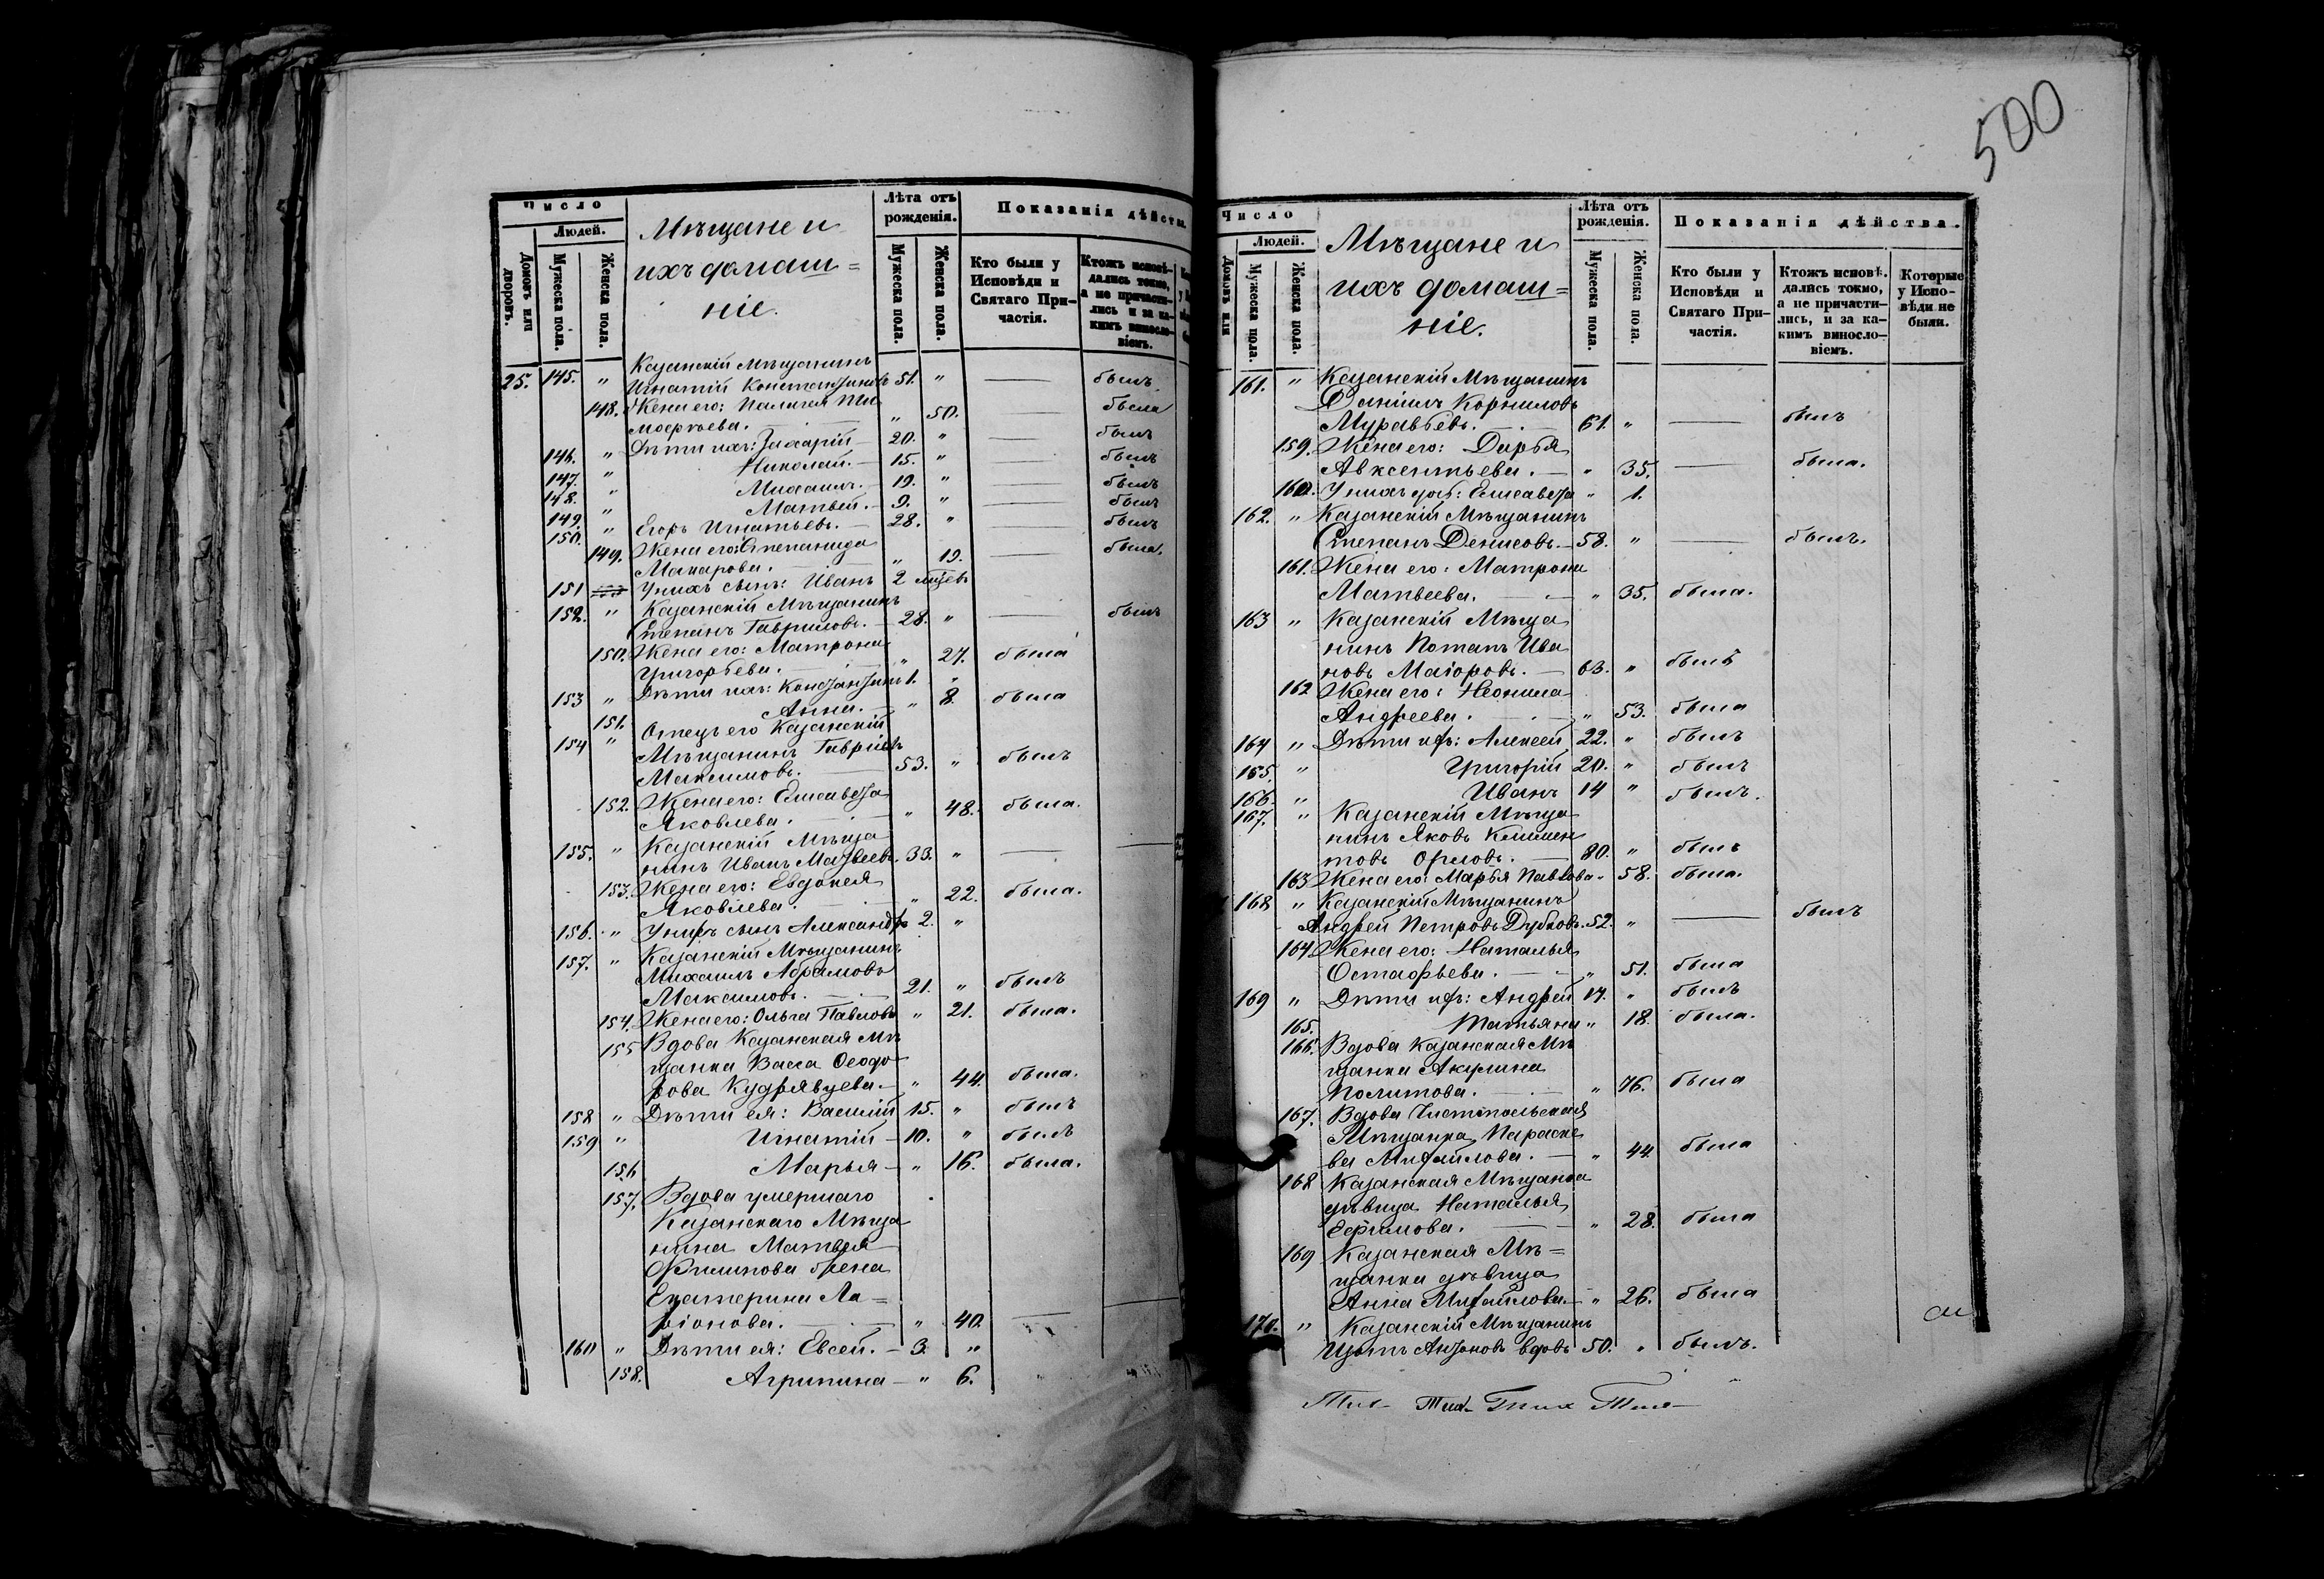 500
Число
Людей.
Домовъ или дворовъ.
Мужеска пола.
Женска пола.
Мѣщане и
ихъ домаш=
ніе.
Лѣта отъ рожденія.
Мужеска пола.
Женска пола.
Показанія дѣйств
Кто были у Исповѣди и Святаго При-частія.
Ктожъ исповѣ-дались токмо, а не причасти-лись и за ка-кимъ винословіемъ.
Казанскій Мѣщанинъ
25. 145. " Игнатій Константиновъ 51. " — былъ
148. Жена его: Палагея Ти
мофѣева. " 50. была
146. " Дѣти ихъ: Захарій — 20. " — былъ
147. " Николай. — 15. " — былъ
148. " Михаилъ. — 19. " — былъ
149. " Матвей. — 9. " — былъ
150. " Егоръ Игнатьевъ. — 28. " — былъ
149. Жена его: Степанида
Макарова. " 19. — была.
151 У нихъ сынъ: Иванъ 2 мѣсѣв
152. " Казанскій Мѣщанинъ
Степанъ Гавриловъ. — 28. " — былъ
150. Жена его: Матрона
Григорьева. " 27. была
153 " Дѣти ихъ: Константинъ 1. "
151. Анна. — " 8. была
154 " Отецъ его Казанскій
Мѣщанинъ Гаврилъ
Максимовъ. 53. " былъ
152. Жена его: Елисавета
Яковлева. " 48. была.
155. " Казанскій Мѣща
нинъ Иванъ Матвеевъ. 33. " —
153. Жена его: Евдокея
Яковлева. " 22. была.
156. " У нихъ сынъ Александръ 2. "
157. " Казанскій Мѣщанинъ
Михаилъ Абрамовъ
Максимовъ. 21. " былъ
154. Жена его: Ольга Павлова " 21. была.
155 Вдова Казанская Мѣ
щанка Васса Ѳеодо
рова Кудрявцева. — " 44. была.
158 " Дѣти ея: Василій 15. " былъ
159 " Игнатій — 10. " былъ
156 Марья — " 16. была.
157. Вдова умершаго
Казанскаго Мѣща
нина Матвея
Филипова жена
Екатерина Ла=
ріонова. " 40. —
160 " Дѣти ея: Евсей. — 3. "
158. Агрипина — " 6.
Число
Людей.
Домовъ или
Мужеска пола.
Женска пола.
Мѣщане и
ихъ домаш=
ніе.
Лѣта отъ рожденія.
Мужеска пола.
Женска пола.
Показанія дѣйства.
Кто были у Исповѣди и Святаго При-частія.
Ктожъ исповѣ.дались токмо, а не причасти-лись, и за ка-кимъ винословіемъ.
Которые у Испо-вѣди не были.
161. " Казанскій Мѣщанинъ
Даніилъ Корниловъ
Муравьевъ. 61. " — былъ
159. Жена его: Дарья
Авксентьева. — " 35. — была.
160. У нихъ доч: Елисавета " 1.
162. " Казанскій Мѣщанинъ
Степанъ Денисовъ. — 58. " — былъ.
161. Жена его: Матрона
Матвеева. " 35. была.
163 " Казанскій Мѣща
нинъ Потапъ Ива
новъ Маіоровъ. — 63. " былъ
162 Жена его: Неонила
Андреева. " 53. была
164 " Дѣти ихъ: Алексей 22. " былъ
165. " Григорій 20. " былъ
166. " Иванъ 14 " былъ.
167. " Казанскій Мѣща
нинъ Яковъ Климен
товъ Орловъ. — 80. " былъ
163 Жена его: Марья Павлова " 58. была.
168 " Казанскій Мѣщанинъ
Андрей Петровъ Дубковъ. 52. " — былъ
164 Жена его: Наталья
Остафьева. " 51. была
169 " Дѣти ихъ: Андрей 17. " былъ
165. Татьяна " 18. была.
166. Вдова Казанская Мѣ
щанка Акулина
Политова. " 76. была
167. Вдова Чистопольская
Мѣщанка Параске
ва Михайлова. — " 44 была
168 Казанская Мѣщанка
дѣвица Наталья
Ефимова. " 28. была
169 Казанская Мѣ=
щанка дѣвица
Анна Михайлова. — " 26. была
170. " Казанскій Мѣщанинъ
Изотъ Антоновъ вдовъ 50. " былъ.